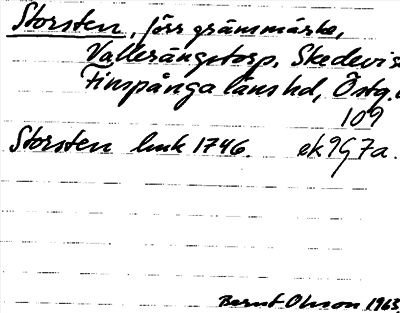 Storsten, förr gränsmärke,
Vallerängstorp, Skedevi s
Finspånga läns hd, Östg.
109
Storsten lmk 1746. ek 9G7a.
Bernt Olsson 1963